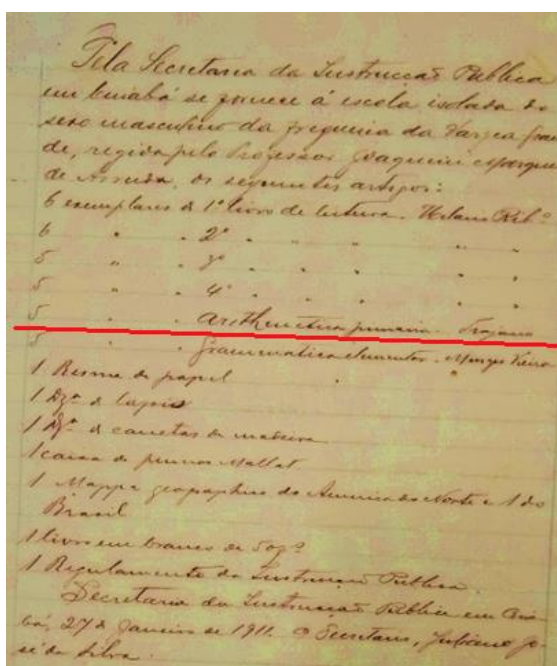 Pela Secretaria da Instrucção Publica
em Cuiabá se fornece á escola isolada do
sexo masculino da freguesia da Varzea Gran
de, regida pelo Professor Joaquim Marques
de Arruda, os seguintes artigos:
6 exemplares do 1º livro de leitura. Hilario Ribº
6 " . 2º . " " " "
5 " . 3º . " " " "
5 " . 4º . " " " "
5 " . Arithmetica primaria. Trajano
5 " . Grammatica elementar. Menezes Vieira
1 Resma de papel
1 Dzª de lapis
1 Dzª de canetas de madeira
1 caixa de pennas Mallat
1 Mappa geographico da America do Norte e 1 do
Brasil
1 livro em branco de 50 fˢ
1 Regulamento da Instrucção Publica.
Secretaria da Instrucção Publica em Cuia
bá, 27 de Janeiro de 1911. O Secretario, Juliano Jo
sé da Silva.